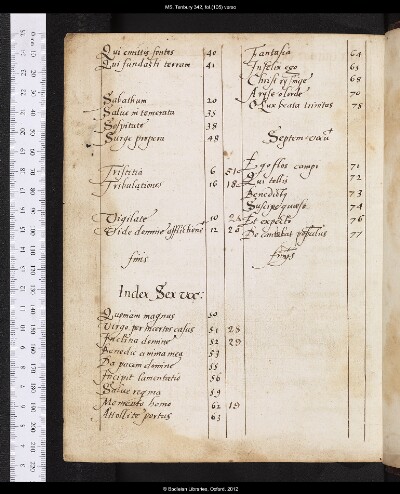 MS. Tenbury 342, fol (105) verso
Qui emittis fontes 40
Qui fundasti terram 41
Sabathum 20
Salue intemerata 35
Sospitate 38
Surge propera 48
Tristitia 6 51
Tribulationes 16 18
Vigilate 10 22
Vide domine afflictione 12 26
finis
Index Sex voc:
Quoniam magnus 50
Virgo per incertos casus 51 28
Inclina domine 52 29
Benedic anima mea 53
Da pacem domine 55
Incipit lamentatio 56
Salue regina 59
Memento homo 62 19
Attollite portas 63
Fantasia 64
Infelix ego 65
Christ rysinge 68
Aryse o lorde 70
O Lux beata trinitas 75
Septem vocu
Ego flos campi 71
Qui tollis 72
Benedictus 73
Suscipe quæso 74
Et expecto 76
populus 77
finis
© Bodleian Libraries, Oxford, 2012